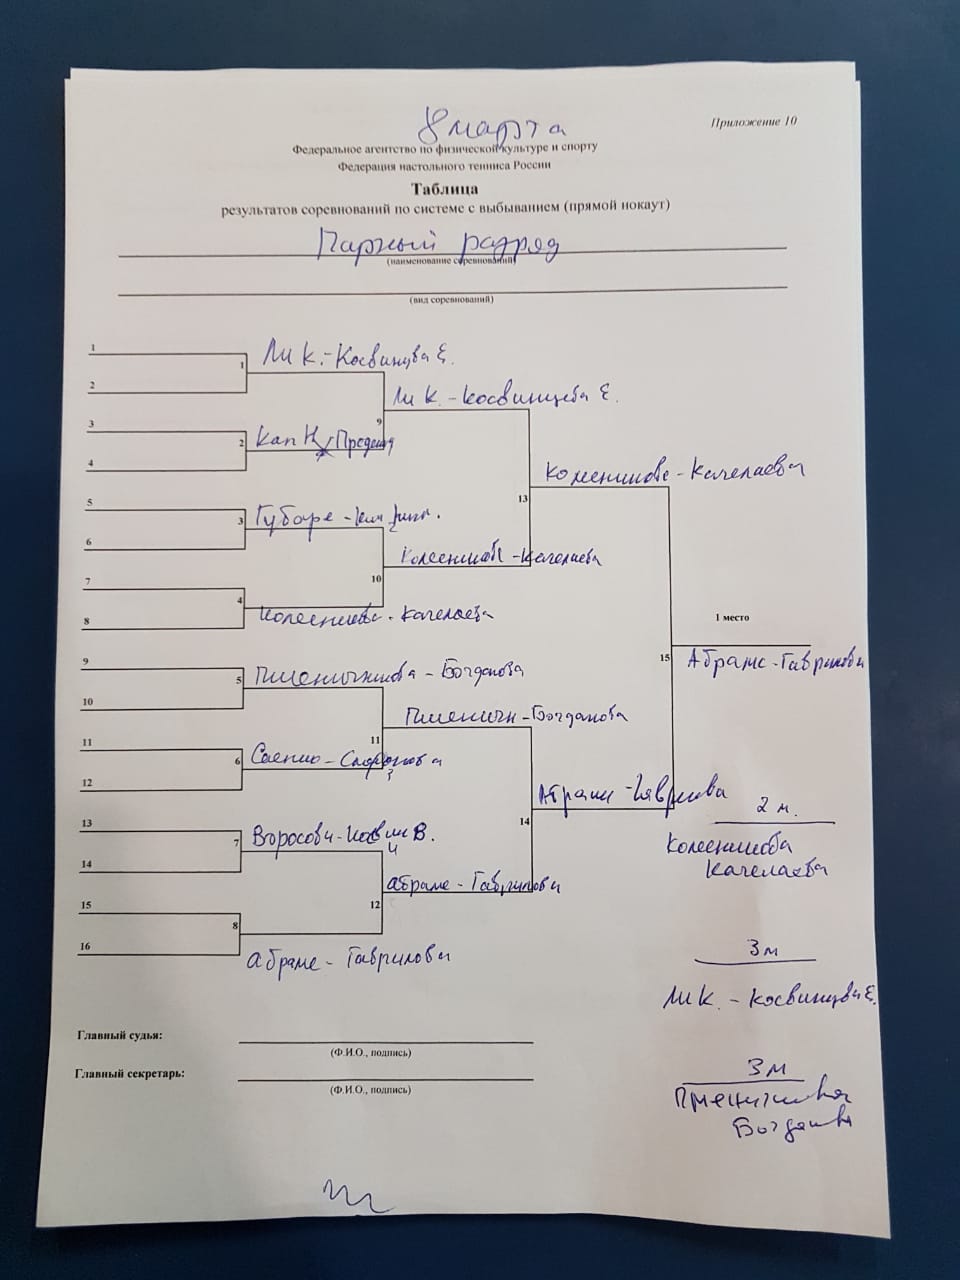 8 марта
Приложение 10
Федеральное агентство по физической культуре и спорту
Федерация настольного тенниса России
Таблица
результатов соревнований по системе с выбыванием (прямой нокаут)
Парный разряд
(наименование соревнований)
(вид соревнований)
1
1
Ли К. - Косвинцева Е.
2
Ли К. - Косвинцева Е.
9
3
2
Кап Н
4
Колесникова - Качелаева
13
5
3
Губаре -
6
Колесников - Качелаева
10
7
4
8
Колесникова - Качелаева
1 место
15
Абраме - Гаврилова
9
5
Пшеничникова - Богданова
10
Пшеничн - Богданова
11
11
6
12
Абрами - Гаврилова
14
2 м.
Колесникова
Качелаева
13
7
В.
14
Абраме - Гаврилова
12
15
8
16
Абраме - Гаврилова
3 м
Ли К. - Косвинцева Е.
Главный судья:
(Ф.И.О., подпись)
Главный секретарь:
(Ф.И.О., подпись)
3 м
Богданова